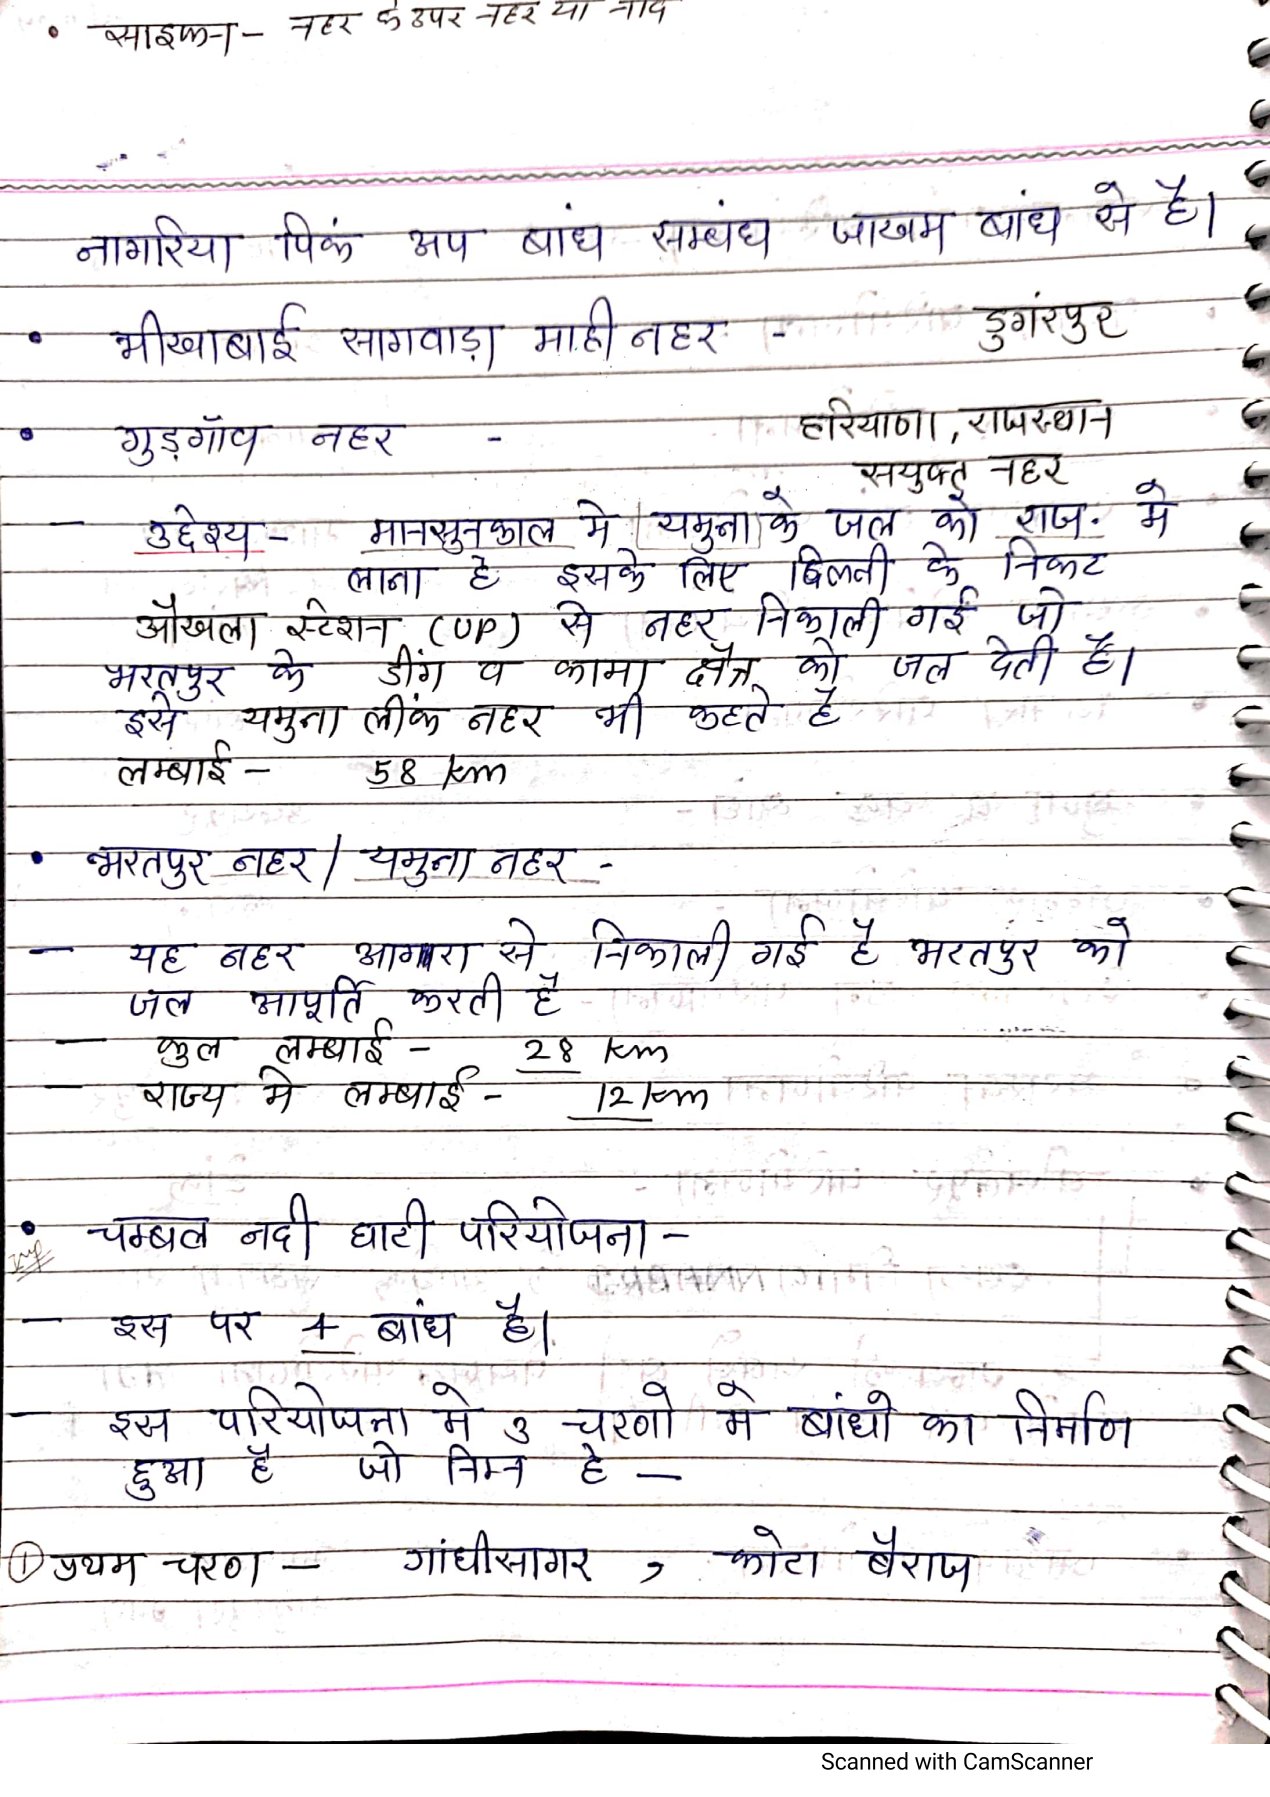 • साइफन - नहर के उपर नहर या
नागरिया पिकं अप बांध सम्बंध जाखम बांध से है।
• भीखाबाई सागवाड़ा माही नहर - डुगंरपुर
• गुड़गॉव नहर - हरियाणा, राजस्थान
सयुक्त नहर
- उद्देश्य - मानसुनकाल मे यमुना के जल को राज. मे
लाना है इसके लिए दिलनी के निकट
औखला स्टेशन (UP) से नहर निकाली गई जो
भरतपुर के डींग व कामा क्षैत्र को जल देती है।
इसे यमुना लीकं नहर भी कहते है
लम्बाई - 58 km
• भरतपुर नहर / यमुना नहर -
- यह नहर आगरा से निकाली गई है भरतपुर को
जल आपूर्ति करती है
- कुल लम्बाई - 28 km
- राज्य मे लम्बाई - 12 km
• चम्बल नदी घाटी परियोजना -
Imp
- इस पर 4 बांध है।
- इस परियोजना मे 3 चरणो मे बांधो का निर्माण
हुआ है जो निम्न है -
① प्रथम चरण - गांधीसागर , कोटा बैराज
Scanned with CamScanner